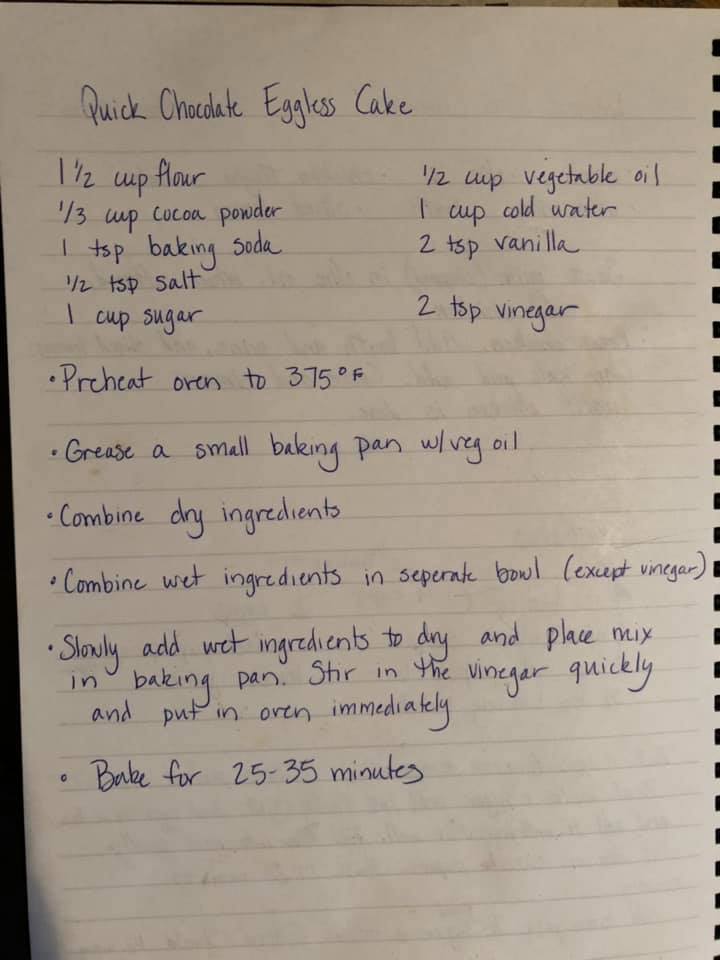 Quick Chocolate Eggless Cake
1 1/2 cup flour
1/3 cup cocoa powder
1 tsp baking soda
1/2 tsp salt
1 cup sugar
1/2 cup vegetable oil
1 cup cold water
2 tsp vanilla
2 tsp vinegar
• Preheat oven to 375°F
• Grease a small baking pan w/veg oil
• Combine dry ingredients
• Combine wet ingredients in seperate bowl (except vinegar)
• Slowly add wet ingredients to dry and place mix
in baking pan. Stir in the vinegar quickly
and put in oven immediately
• Bake for 25-35 minutes